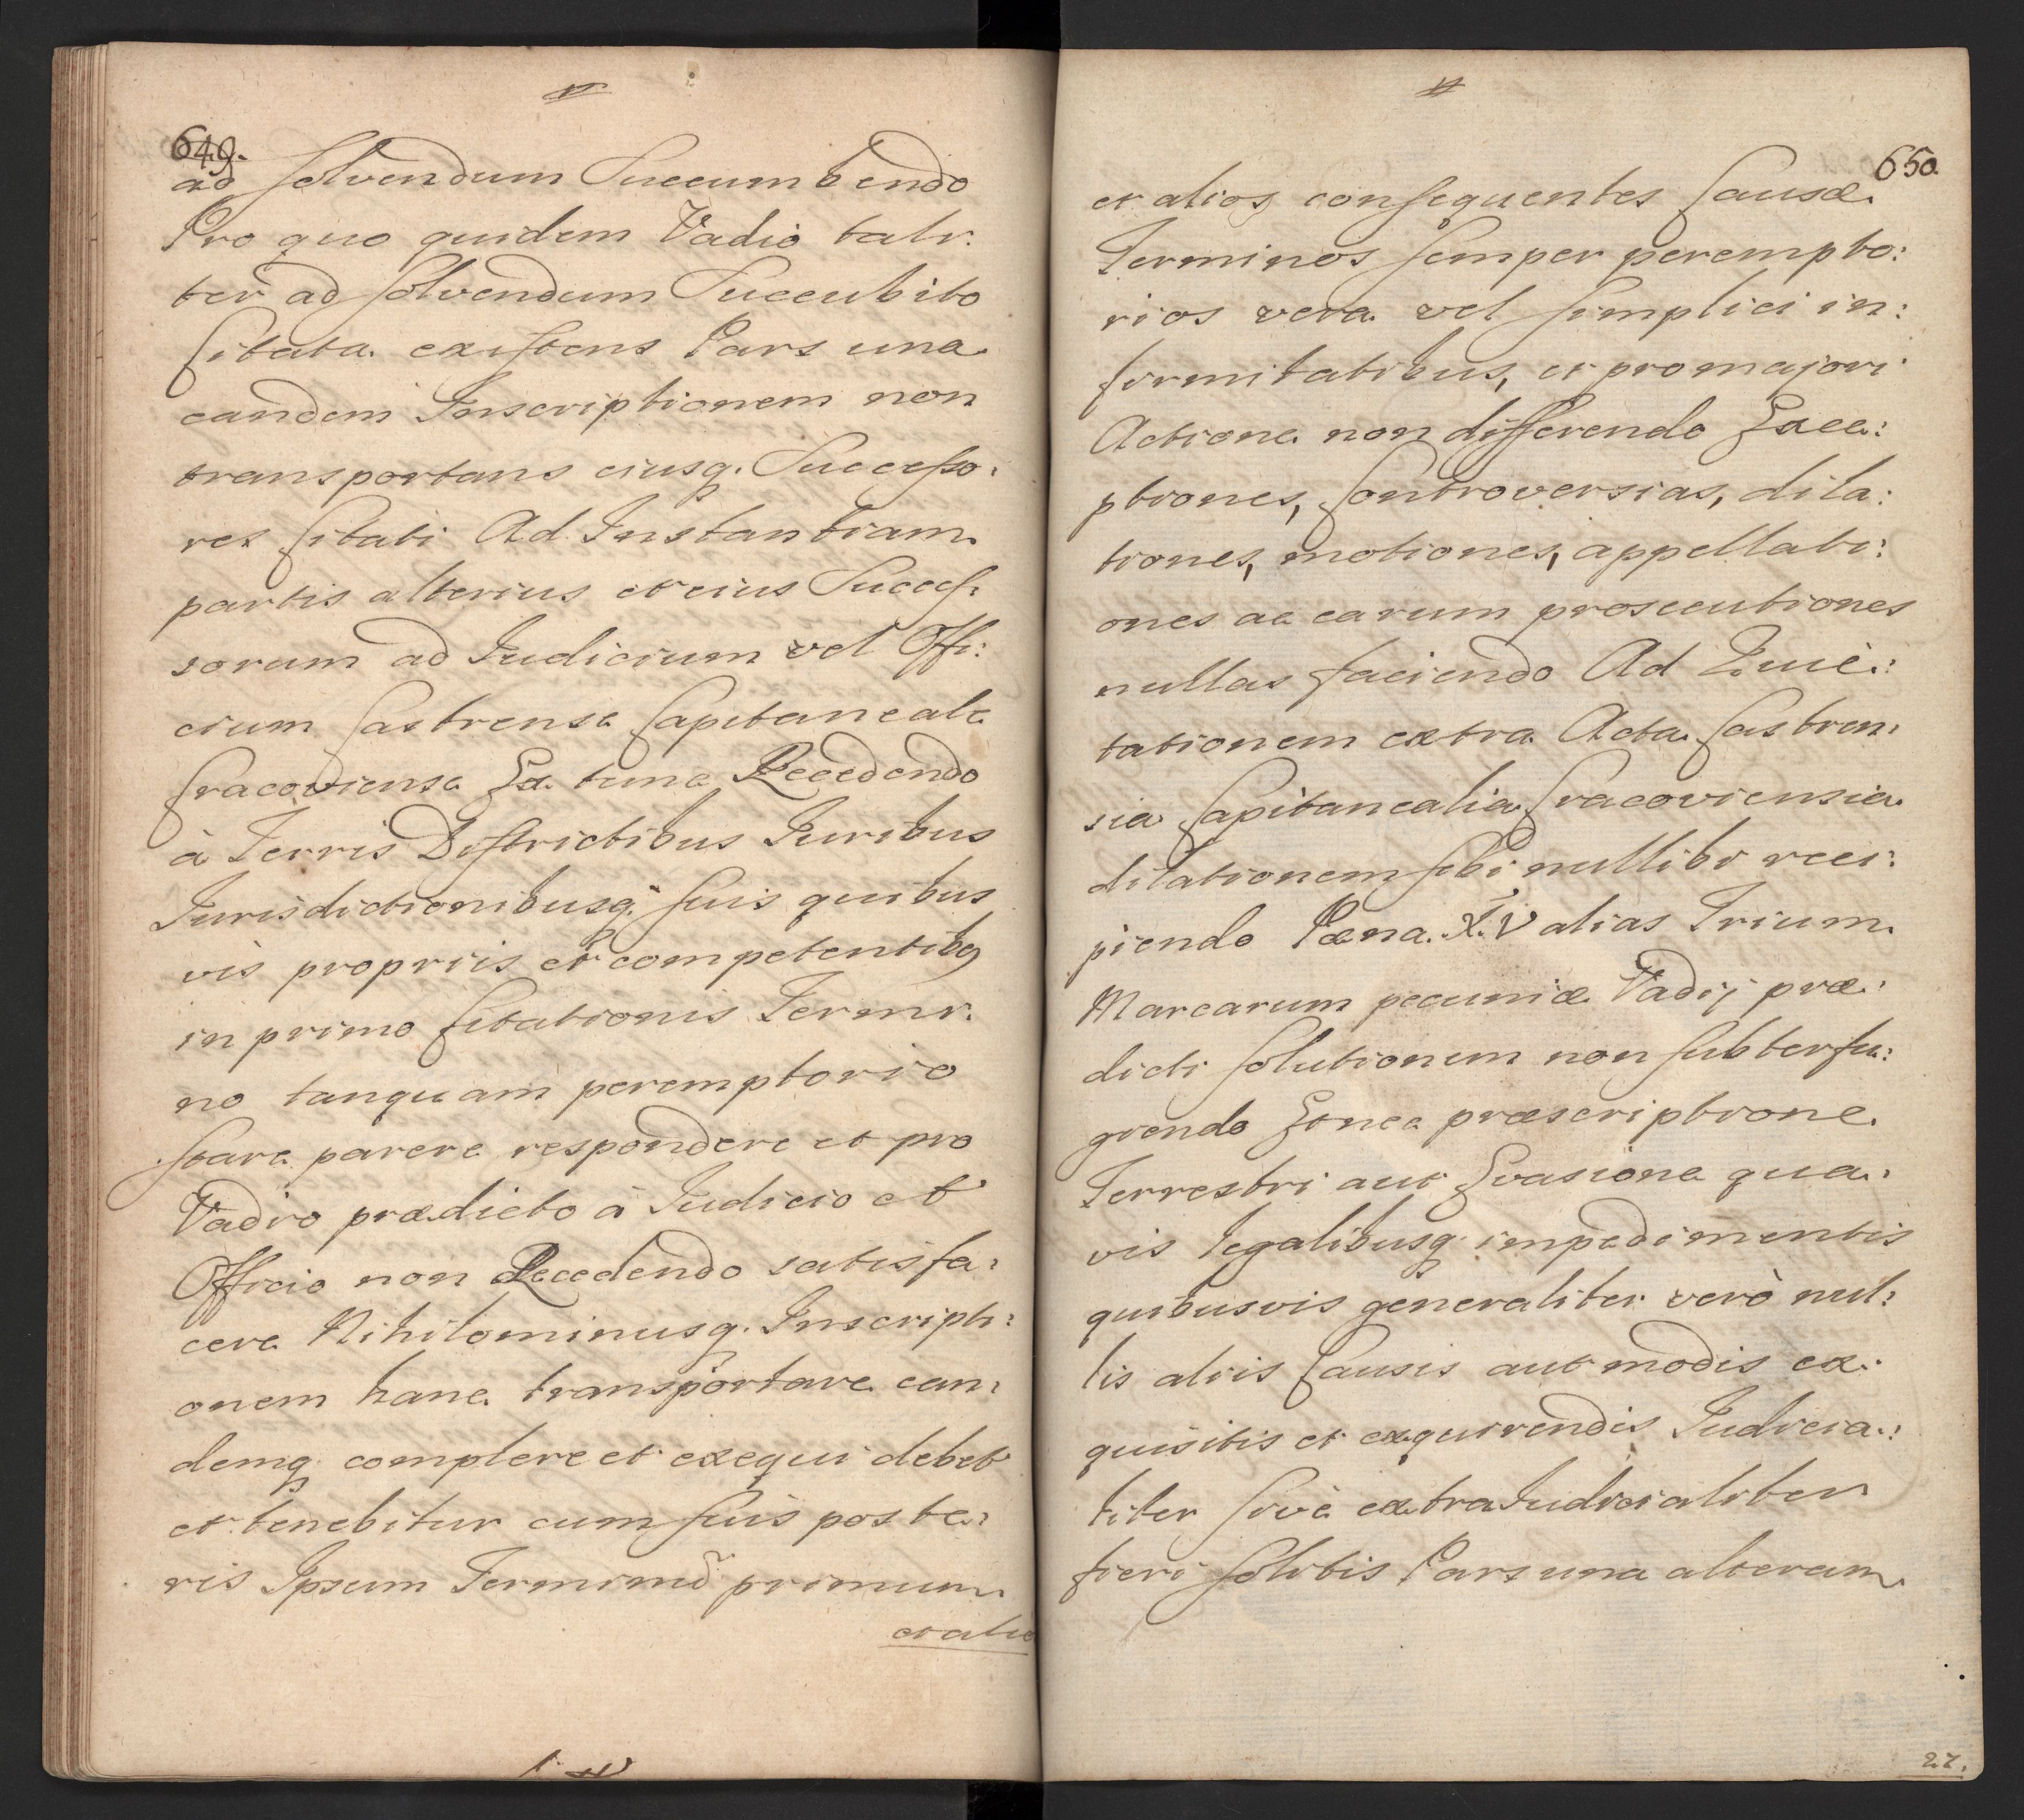 649.
ad solvendum Succumbendo
Pro quo quidem Vadio tali:
ter ad solvendum Succubito
Citata existens Pars una
eandem Inscriptionem non
transportans eiusq. Successo:
res Citati Ad Instantiam
partis alterius et eius Succes:
sorum ad Iudicium vel Offi:
cium Castrense Capitaneale
Cracoviense Ex tunc Recedendo
à Terris Districtibus Iuribus
Iurisdictionibusq. suis quibus
vis propriis et competentibq
in primo Citationis Termi:
no tanquam peremptorio
stare parere respondere et pro
Vadio prædicto à Iudicio et
Officio non Recedendo satisfa:
cere Nihilominusq. Inscripti:
onem hanc transportare ean:
demq. complere et exequi debet
et tenebitur cum suis poste:
ris Ipsum Terminū primum
et alio
650.
et alios consequentes Causæ
Terminos semper perempto:
rios vera vel simplici in:
firmitatibus, et pro majori
Actione non differendo Exce:
ptiones, Controversias, dila:
tiones, motiones, appellati:
ones ac earum prosecutiones
nullas faciendo Ad Quie:
tationem extra Acta Castren:
sia Capitanealia Cracoviensia
dilationem sibi nullibi reci:
piendo Pæna X.V alias Trium
Marcarum pecuniæ Vadij præ:
dicti solutionem non subterfu:
giendo Denea præscriptione
Terrestri aut Evasione qua:
vis legalibusq. impedimentis
quibusvis generaliter verò nul:
lis aliis Causis aut modis ex:
quisitis et exquirendis Iudicia:
liter sivè extraIudicialiter
fieri solitis Pars una alteram
27.